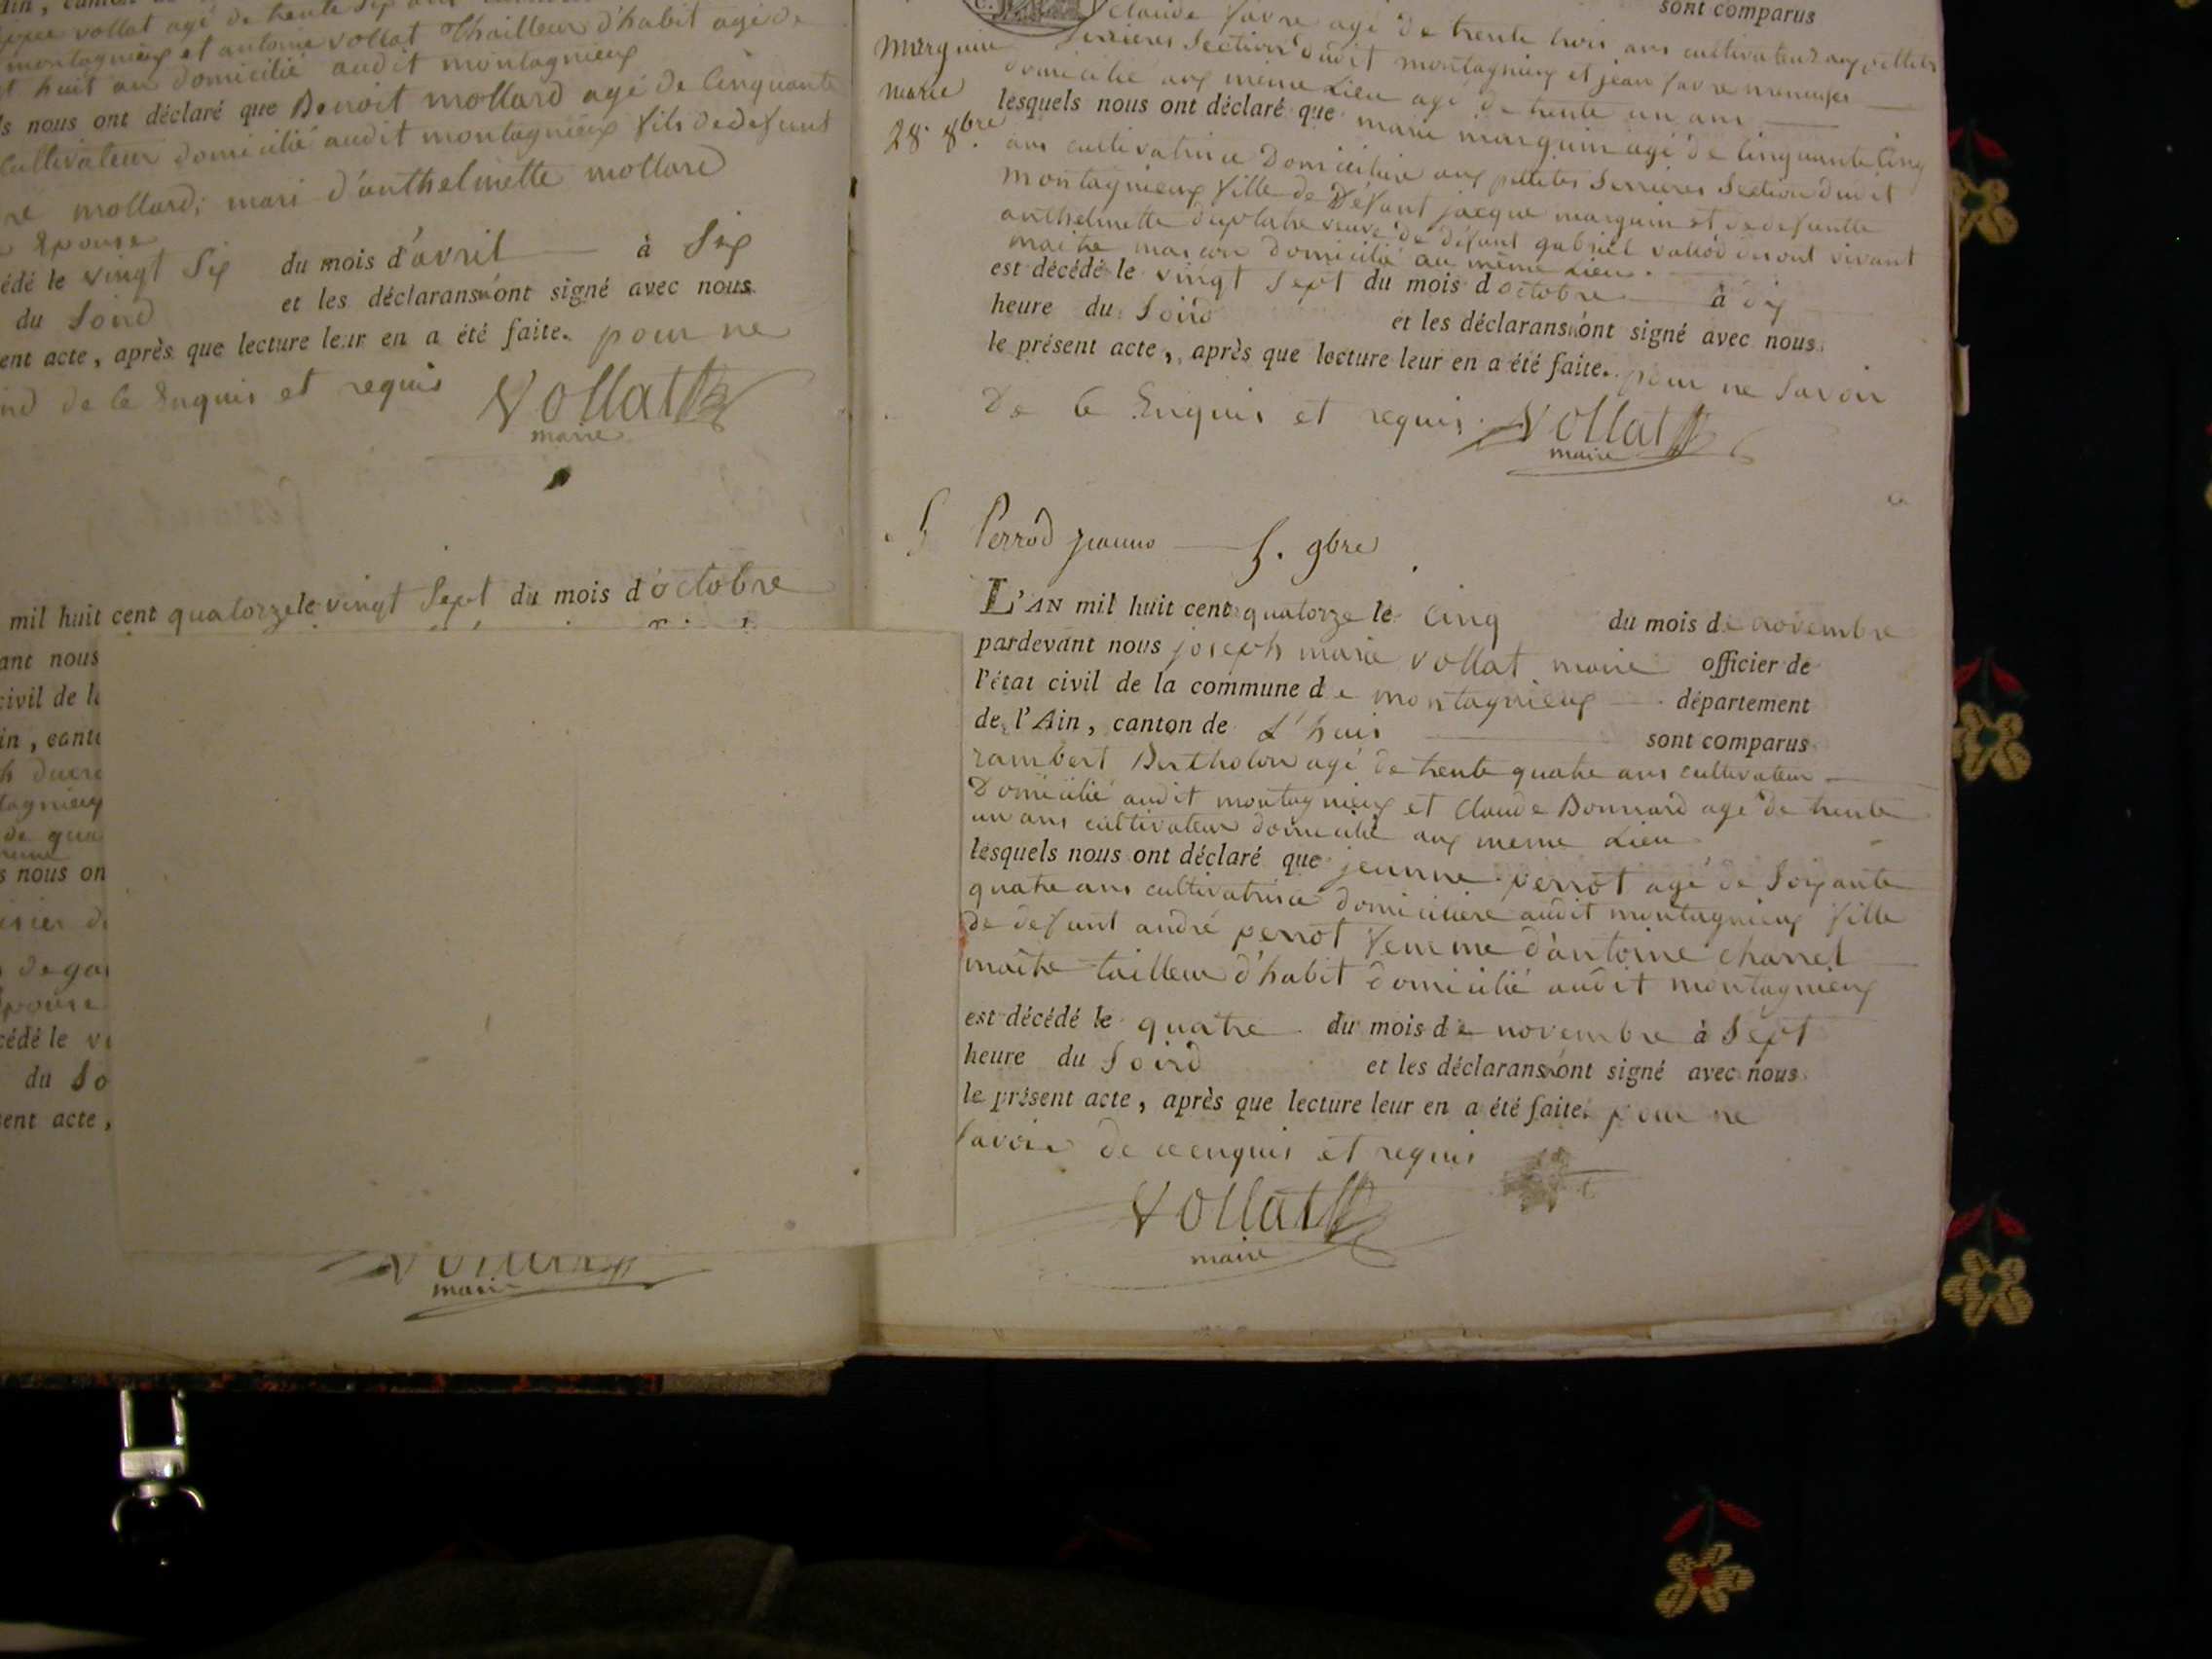 vollat agé de trente six ans
montagnieux et antoine vollat thailleur d'habit agé de
huit an domicilié audit montagnieux
ls nous ont déclaré que Benoit mollard agé de Cinquante
Cultivateur domicilié audit montagnieux fils de defunt
mollard, mari d'anthelmette mollard
Epouse
édé le vingt Six du mois d'avril à Six
du Soird et les déclarans n'ont signé avec nous
ent acte, après que lecture leur en a été faite. pour ne
de Ce Enquis et requis Vollat
maire
mil huit cent quatorze le vingt Sept du mois d'octobre
ant nous
civil de la
in, cant
tagnieux
de qua
s nous on
de
épouse
cédé le vi
du So
ent acte,
maire
sont comparus
Claude favre agé de trente trois ans cultivateur aux petites
Marguin
Serrieres Section dudit montagnieux et jean favre menusier
marie
domicilié aux même Lieu agé de trente un ans
28. 8bre
lesquels nous ont déclaré que marie marguin agé de Cinquante Cinq
ans cultivatrice Domiciliaire aux petites Serrieres Section dudit
montagnieux fille de Défunt jacque marguin et de defuntte
anthelmette veuve de défunt gabriel vallod vivant
maitre macon domicilié au même Lieu.
est décédé le vingt Sept du mois d octobre à dix
heure du Soird et les déclarans n'ont signé avec nous
le présent acte, après que lecture leur en a été faite. pour ne Savoir
De Ce Enquis et requis. Vollat
maire
5 Perrod jeanne 5. 9bre
L'AN mil huit cent quatorze le Cinq du mois de novembre
pardevant nous joseph marie vollat maire officier de
l'état civil de la commune de montagnieux département
de l'Ain, canton de L'huis sont comparus
rambert Bertholon agé de trente quatre ans cultivateur
Domicilié audit montagnieux et Claude Bonnard agé de trente
un ans cultivateur domicilié aux meme Lieu
lesquels nous ont déclaré que jeanne perrot agé de Soixante
quatre ans cultivatrice domiciliere audit montagnieux fille
de defunt andré perrot femme d'antoine charvet
maitre tailleur d'habit domicilié audit montagnieux
est décédé le quatre du mois de novembre à Sept
heure du Soird et les déclarans n'ont signé avec nous
le présent acte, après que lecture leur en a été faite. pour ne
Savoir de ce enquis et requis
Vollat
maire